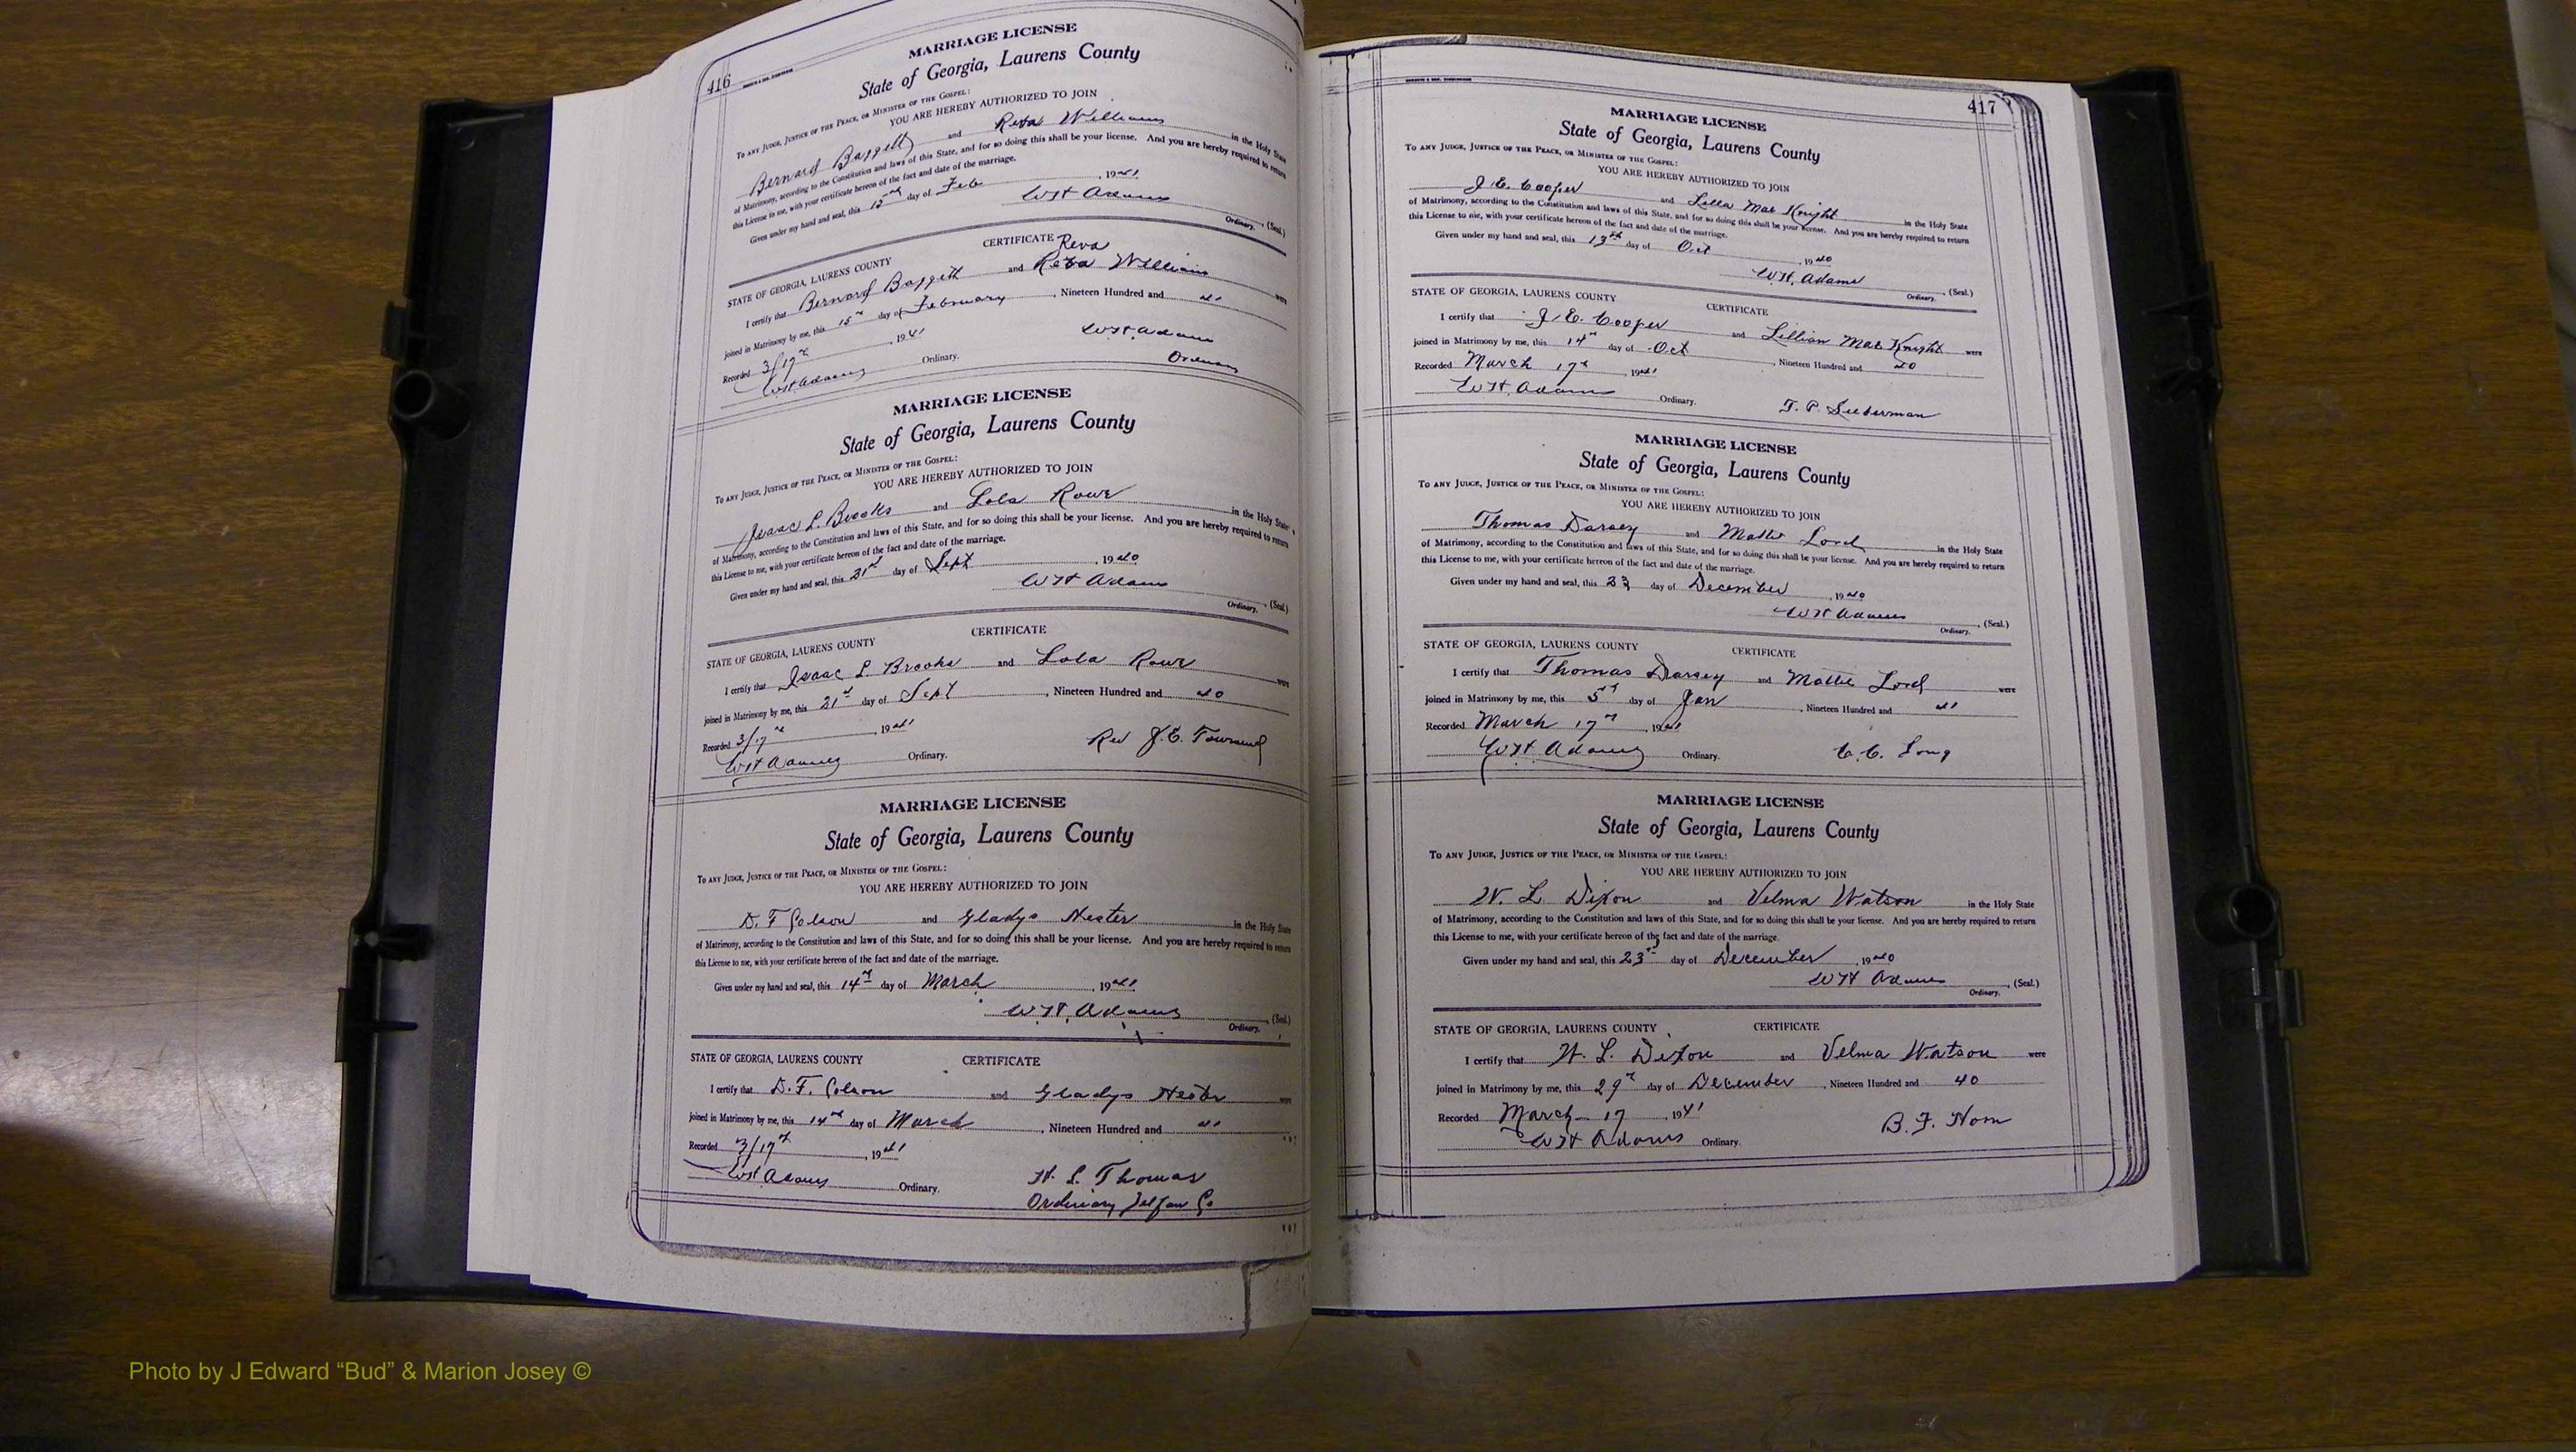 416
MARRIAGE LICENSE
State of Georgia, Laurens County
To any Judge, Justice of the Peace, or Minister of the Gospel:
YOU ARE HEREBY AUTHORIZED TO JOIN
Bernard Baggett and Reva Williams in the Holy State
of Matrimony, according to the Constitution and laws of this State, and for so doing this shall be your license. And you are hereby required to return
this License to me, with your certificate hereon of the fact and date of the marriage.
Given under my hand and seal, this 15th day of Feb, 1941
W H Adams
Ordinary. (Seal.)
CERTIFICATE Reva
STATE OF GEORGIA, LAURENS COUNTY
I certify that Bernard Baggett and Reva Williams were
joined in Matrimony by me, this 15th day of February, Nineteen Hundred and 41
Recorded 3/17th, 1941 W H Adams
W H Adams Ordinary. Ordinary
MARRIAGE LICENSE
State of Georgia, Laurens County
To any Judge, Justice of the Peace, or Minister of the Gospel:
YOU ARE HEREBY AUTHORIZED TO JOIN
Isaac L. Brooks and Lola Rowe in the Holy State
of Matrimony, according to the Constitution and laws of this State, and for so doing this shall be your license. And you are hereby required to return
this License to me, with your certificate hereon of the fact and date of the marriage.
Given under my hand and seal, this 21st day of Sept, 1940
W H Adams
Ordinary. (Seal.)
CERTIFICATE
STATE OF GEORGIA, LAURENS COUNTY
I certify that Isaac L Brooks and Lola Rowe were
joined in Matrimony by me, this 21st day of Sept, Nineteen Hundred and 40
Recorded 3/17th, 1941 Rev J. E. Townsend
W H Adams Ordinary.
MARRIAGE LICENSE
State of Georgia, Laurens County
To any Judge, Justice of the Peace, or Minister of the Gospel:
YOU ARE HEREBY AUTHORIZED TO JOIN
D. F Colson and Gladys Hester in the Holy State
of Matrimony, according to the Constitution and laws of this State, and for so doing this shall be your license. And you are hereby required to return
this License to me, with your certificate hereon of the fact and date of the marriage.
Given under my hand and seal, this 14th day of March, 1941
W. H. Adams
Ordinary. (Seal.)
STATE OF GEORGIA, LAURENS COUNTY CERTIFICATE
I certify that D. F. Colson and Gladys Hester were
joined in Matrimony by me, this 14th day of March, Nineteen Hundred and 41
Recorded 3/17th, 1941
W H Adams Ordinary. H. L. Thomas
Ordinary Telfair Co
417
MARRIAGE LICENSE
State of Georgia, Laurens County
To any Judge, Justice of the Peace, or Minister of the Gospel:
YOU ARE HEREBY AUTHORIZED TO JOIN
J. E. Cooper and Lilla Mae Knight in the Holy State
of Matrimony, according to the Constitution and laws of this State, and for so doing this shall be your license. And you are hereby required to return
this License to me, with your certificate hereon of the fact and date of the marriage.
Given under my hand and seal, this day of Oct, 1940
W. H. Adams
Ordinary. (Seal.)
STATE OF GEORGIA, LAURENS COUNTY CERTIFICATE
I certify that J. E. Cooper and Lillian Mae Knight were
joined in Matrimony by me, this 14th day of Oct, Nineteen Hundred and 40
Recorded March 17th, 1941
W H Adams Ordinary. T. P.
MARRIAGE LICENSE
State of Georgia, Laurens County
To any Judge, Justice of the Peace, or Minister of the Gospel:
YOU ARE HEREBY AUTHORIZED TO JOIN
Thomas Darsey and Mattie Lord in the Holy State
of Matrimony, according to the Constitution and laws of this State, and for so doing this shall be your license. And you are hereby required to return
this License to me, with your certificate hereon of the fact and date of the marriage.
Given under my hand and seal, this 23 day of December, 1940
W H Adams
Ordinary. (Seal.)
STATE OF GEORGIA, LAURENS COUNTY CERTIFICATE
I certify that Thomas Darsey and Mattie Lord were
joined in Matrimony by me, this 5th day of Jan, Nineteen Hundred and 41
Recorded March 17th, 1941
W H Adams Ordinary. C. C. Long
MARRIAGE LICENSE
State of Georgia, Laurens County
To any Judge, Justice of the Peace, or Minister of the Gospel:
YOU ARE HEREBY AUTHORIZED TO JOIN
W. L Dixon and Velma Watson in the Holy State
of Matrimony, according to the Constitution and laws of this State, and for so doing this shall be your license. And you are hereby required to return
this License to me, with your certificate hereon of the fact and date of the marriage.
Given under my hand and seal, this 23rd day of December, 1940
W H Adams
Ordinary. (Seal.)
STATE OF GEORGIA, LAURENS COUNTY CERTIFICATE
I certify that W. L. Dixon and Velma Watson were
joined in Matrimony by me, this 29th day of December, Nineteen Hundred and 40
Recorded March 17, 1941 B. F. Horn
W H Adams Ordinary.
Photo by J Edward “Bud” & Marion Josey ©